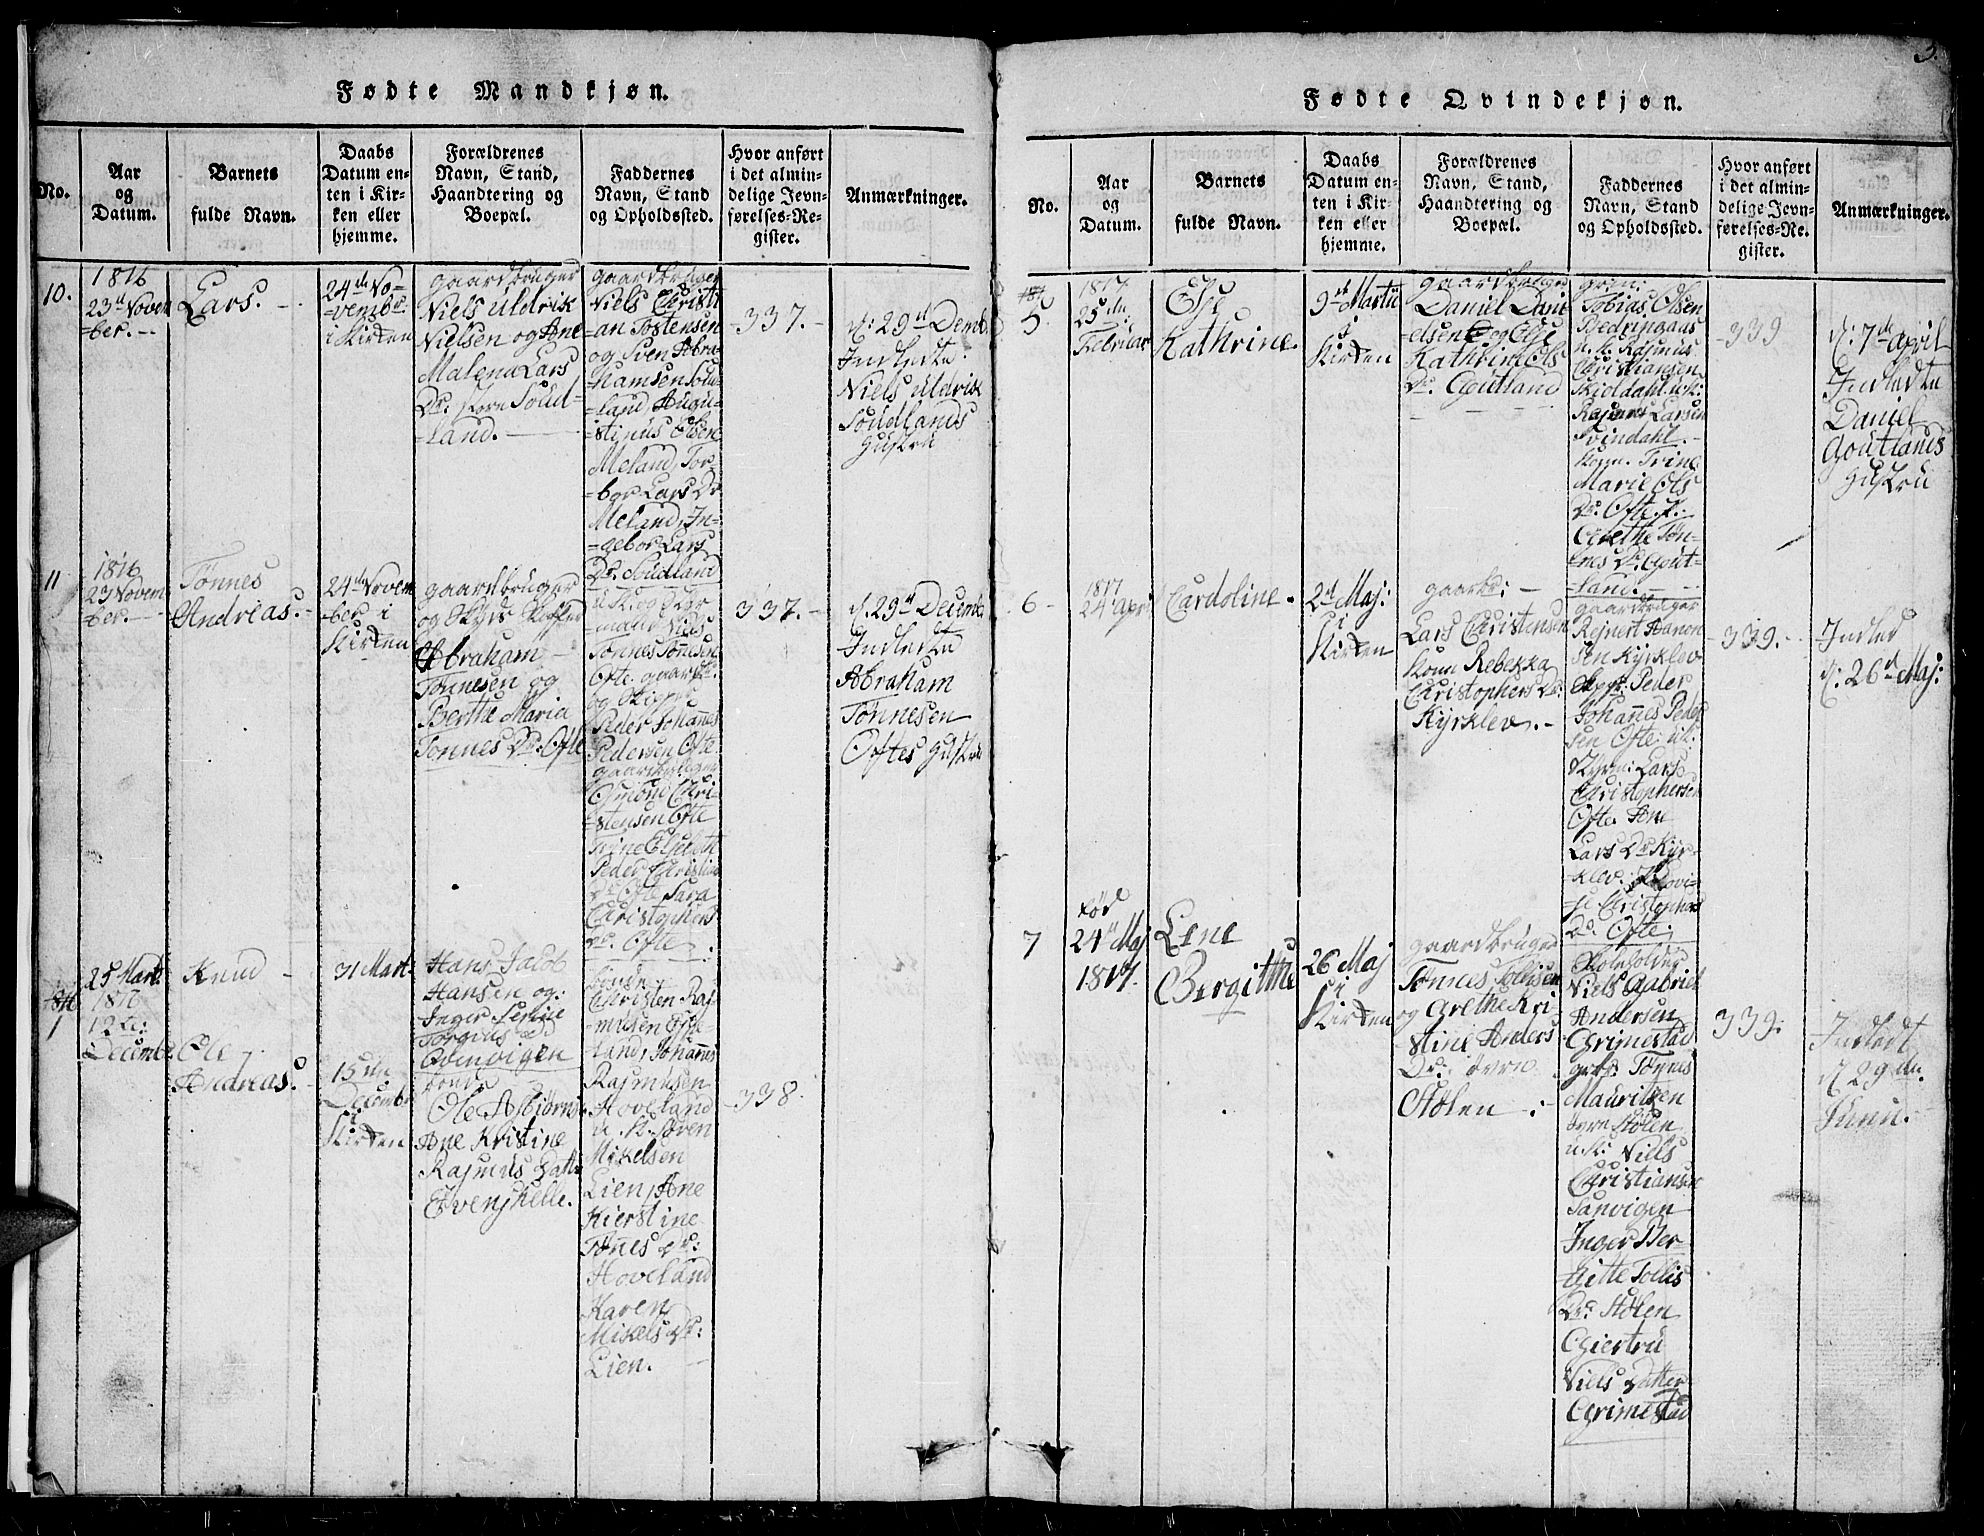 3.
Fødte Mandkjøn.
No.
Aar
og
Datum.
Barnets
fulde Navn.
Daabs
Datum en-
ten i Kir-
ken eller
hjemme.
Forældrenes
Navn, Stand,
Haandtering og
Boepæl.
Faddernes
Navn, Stand
og Opholdssted.
Hvor anført
i det almin-
delige Jevn-
førelses-Re-
gister.
Anmærkninger.
10.
1816
23d Novem
=ber.
Lars.
24de No-
=vember
i Kirken
gaardbruger
Niels Uldrik
Nielsen og Ane
Malena Lars
Dr: store Soud-
land.
gaardbruger
Niels Christi
an Tostensen
og Sven Abra-
hamsen Soud-
=land, Augu-
=stinus Olsen
Meland, Tor-
=bor Lars Dr
Meland, In-
=gebor Lars
Dr. Soudland
337.
d: 29d Decemb.
Indledte
Niels Uldrik
Soudlands
Hustru
11
1816
23 Novem
ber.
Tønnes
Andreas.
24de Novem
ber i
Kirken
gaardbruger
og
Abraham
Tønnesen og
Berthe Maria
Tønnes Dr: Ofte
Niels
Tønnes Tønnesen
Ofte gaardbr:
og Skipper
Peder Johannes
Pedersen Ofte
gaardbruger
Osmond Chri-
=stensen Ofte
Trine Elsebeth
Peder Christian
Dr Ofte Sara
Christophers
Dr. Ofte
337.
d. 29d Decemb
Indledte
Abraham
Tønnesen
Oftes Hustru
1816
1
25 Marti
1816
12te
Decemb
Knud
Ole
Andreas.
31 Mart.
15de
Decemb
i
Kirken
Hans Jacob
Hansen og:
Inger Serine
Torgius
Qvinvigen
bonde
Ole Asbiørns
Ane Kristine
Rasmus Datter
Evenskelle.
Christen Ras-
musen Eske-
land, Johannes
Rasmusen
Hoveland
u. K. Søven
Mikelsen
Lien, Ane
Kierstine
Tønes Dr:
Hoveland
Karen
Mikels Dr:
Lien.
338.
Fødte Qvindekjøn.
No.
Aar
og
Datum.
Barnets
fulde Navn.
Daabs
Datum en-
ten i Kir-
ken eller
hjemme.
Forældrenes
Navn, Stand,
Haandtering og
Boepæl.
Faddernes
Navn, Stand
og Opholdssted.
Hvor anført
i det almin-
delige Jevn-
førelses-Re-
gister.
Anmærkninger.
5.
1817
25de
Februar
Else
Kathrine.
9de Martii
i
Kirken
gaardbruger
Daniel Dani
elsen og Else
Kathrine Ols
Dr. Goutland
Tobias Olsen
Bedringaas
u. k. Rasmus
Christiansen
Skioldahl u.k:
Rasmus Larsen
Svindahl.
Kone Trine
Marie Ols
Dr. Ofte.
Grethe Tøn-
nes Dr. Gout-
land.
339
d: 7de april
Indledte
Daniel
Goutlands
Hustru
6
1817
24 apri
Cardoline.
2d Maj:
i
Kirken
gaardbr:
Lars Christensen
Kone Rebekka
Christophers Dr.
Kyrklev.
gaardbruger
Rejnert Hanon
sen Kyrklev
Skip: Peder
Johannes Peder
sen Ofte: u.k:
Lars
Christophersen
Ofte Ane
Lars Dr Kyr-
klev: Lovi-
se Christophers
Dr: Ofte
339.
Indled
d. 26d Maj:
7
Fød
24de Maj
1817.
Lene
Bergitthe
26 Maj
i
Kirken
gaardbruger
Tønnes Tollisen
og Grethe Kri
stine Anders
Dr: øvre
Stølen
Skoleholder
Niels Gabriel
Andersen
Grimestad
grbr: Tønnis
Mauritsen
øvre Stølen
u.k: Niels
Christiansen
Sanvigen
Inger Ber-
gitte Tollis
Dr: Stølen
Giertru
Niels Datter
Grimestad
339.
Indledt
d 29de
Junii.